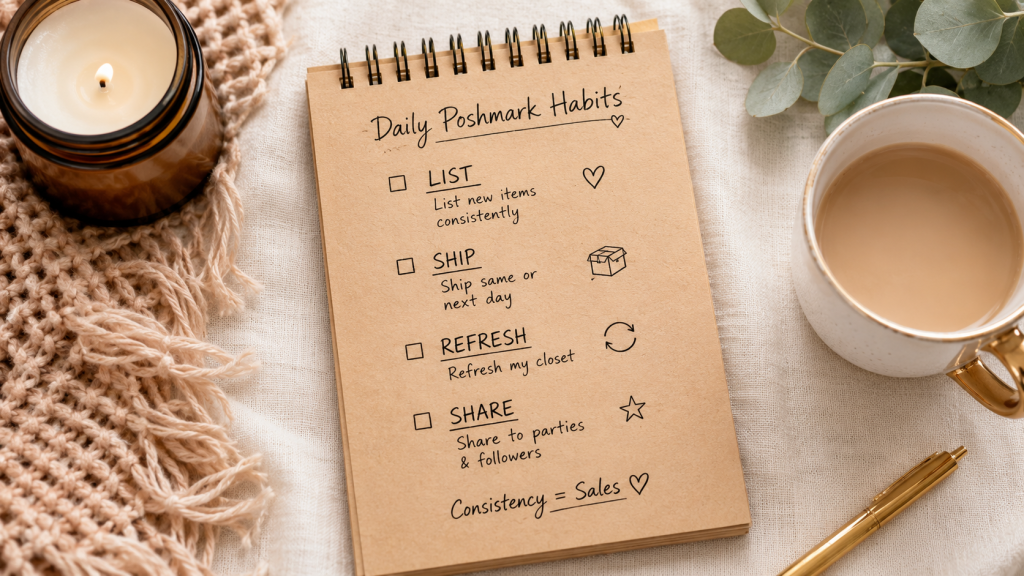 Daily Poshmark Habits
LIST
List new items
consistently
SHIP
Ship same or
next day
REFRESH
Refresh my closet
SHARE
Share to parties
& followers
Consistency = Sales